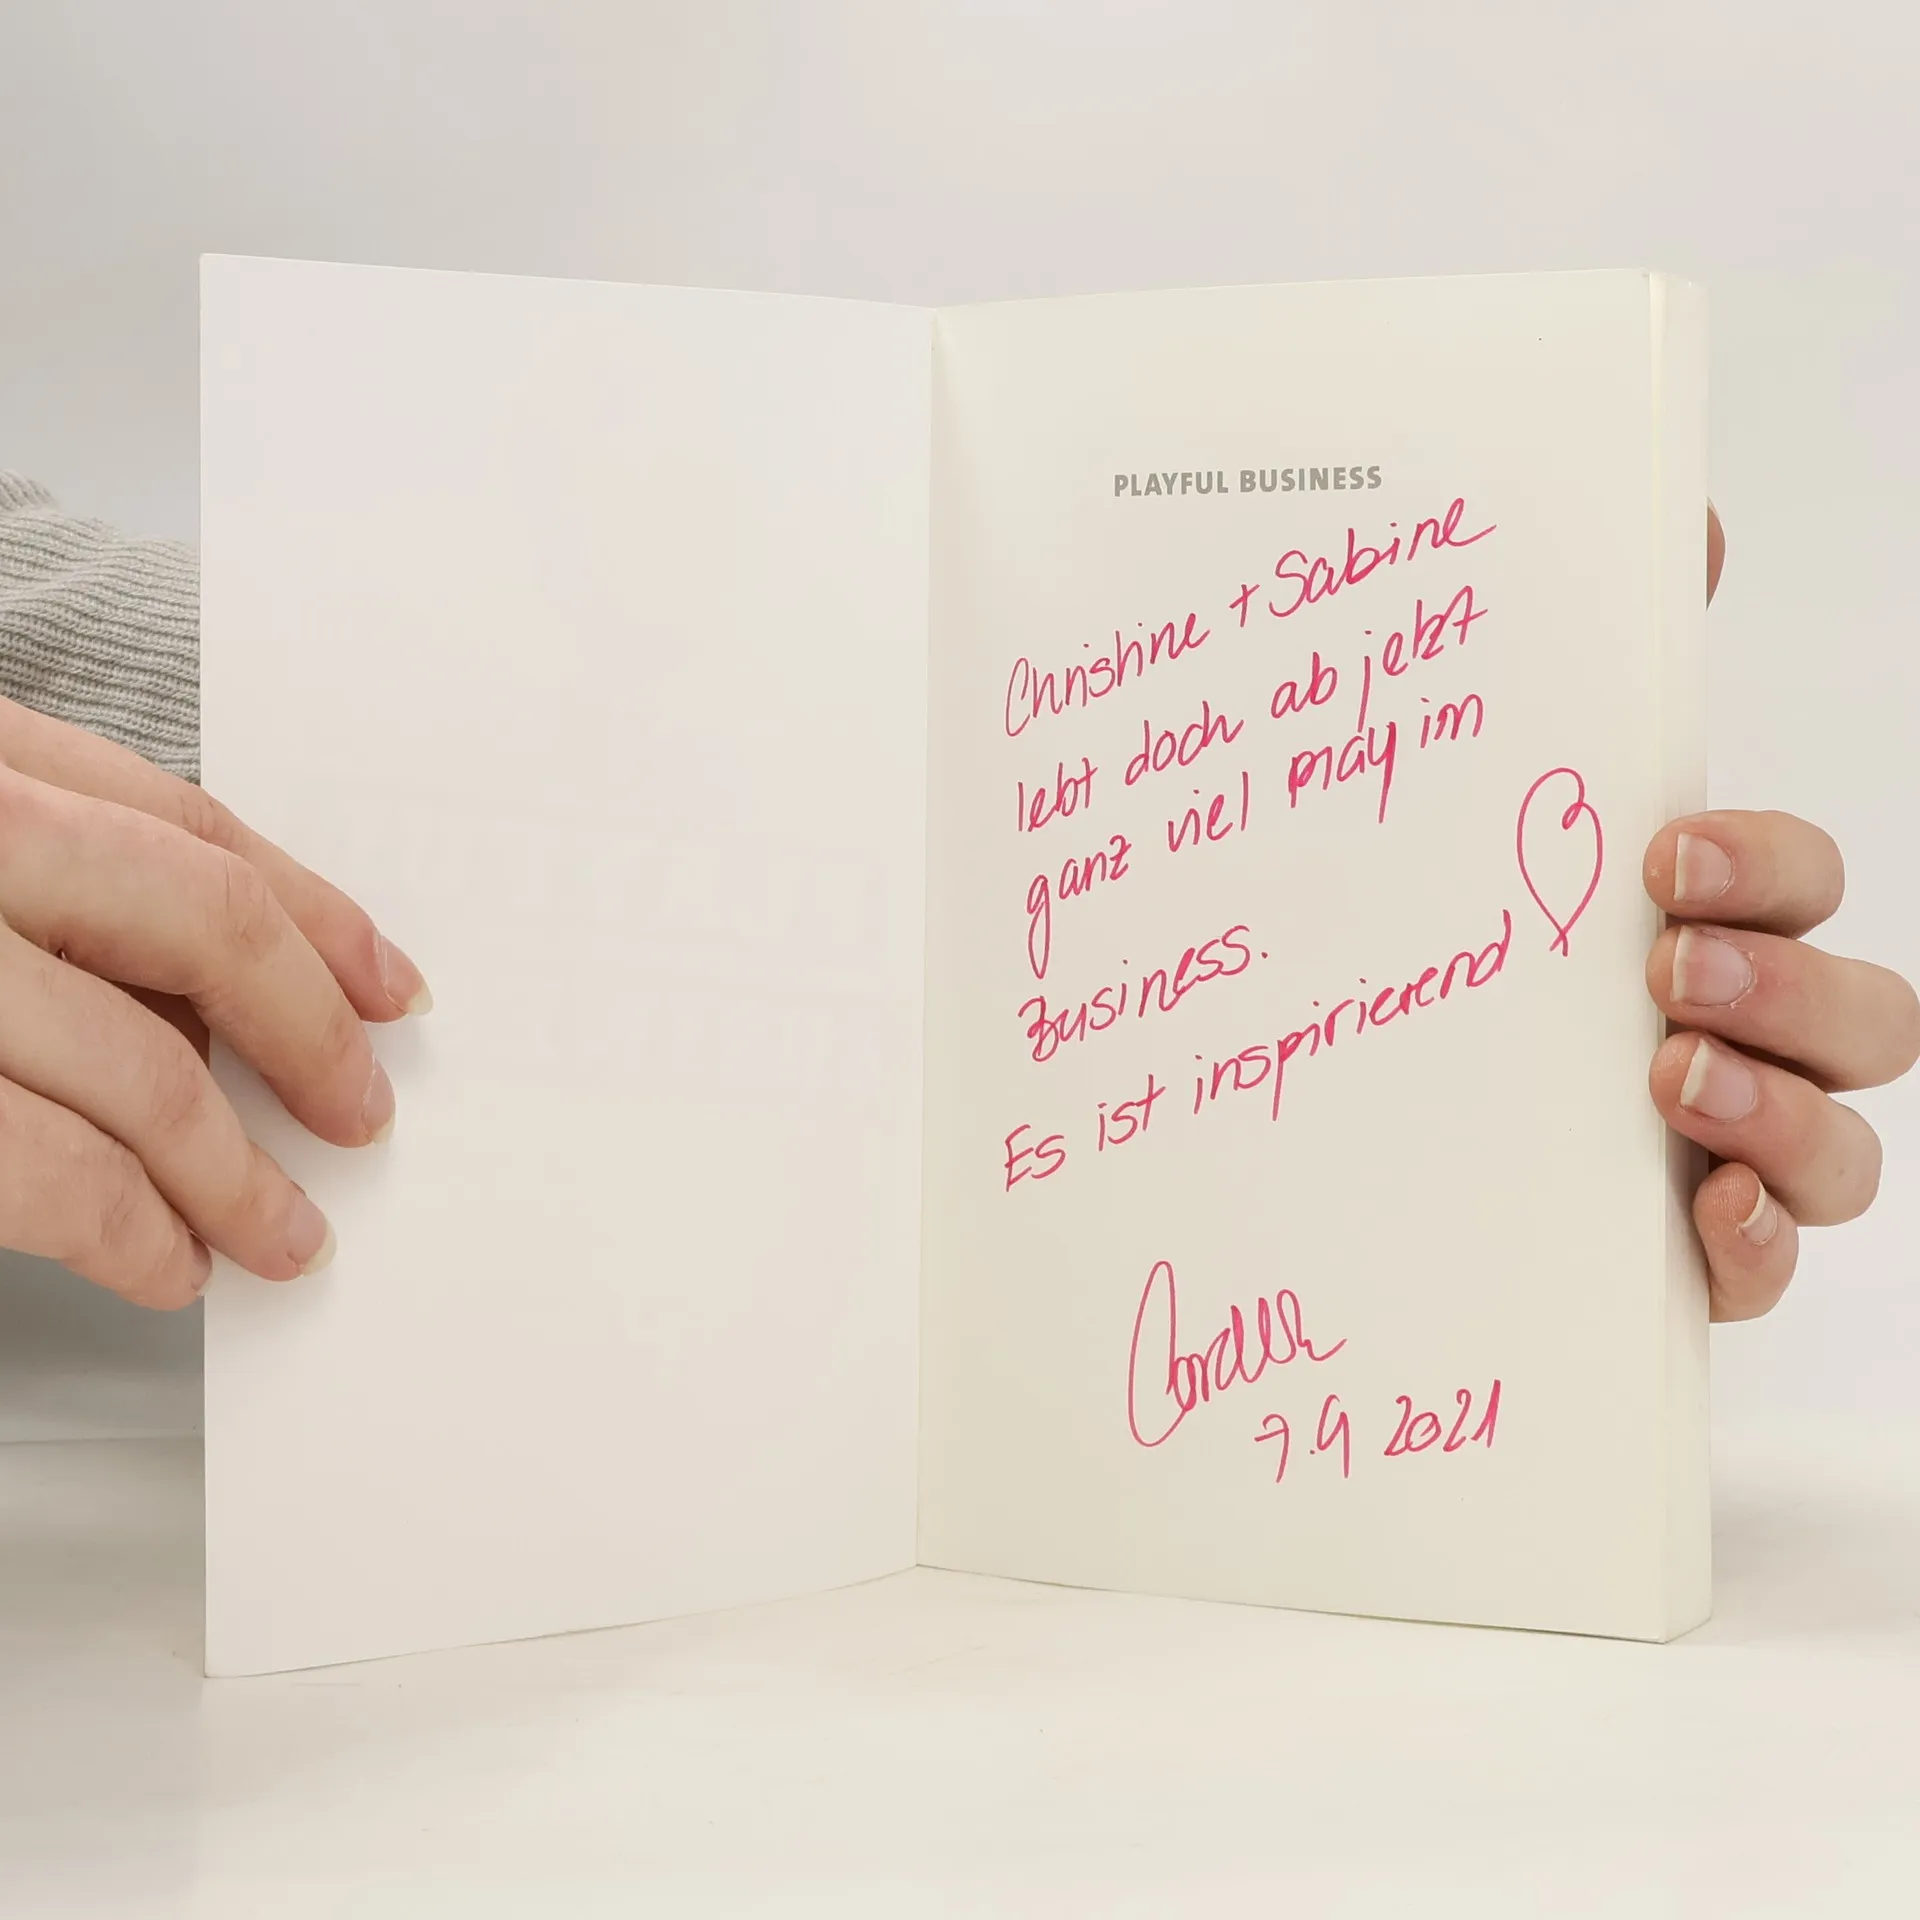 PLAYFUL BUSINESS
Christine + Sabine
lebt doch ab jetzt
ganz viel play im
Business.
Es ist inspirierend
7.9 2021